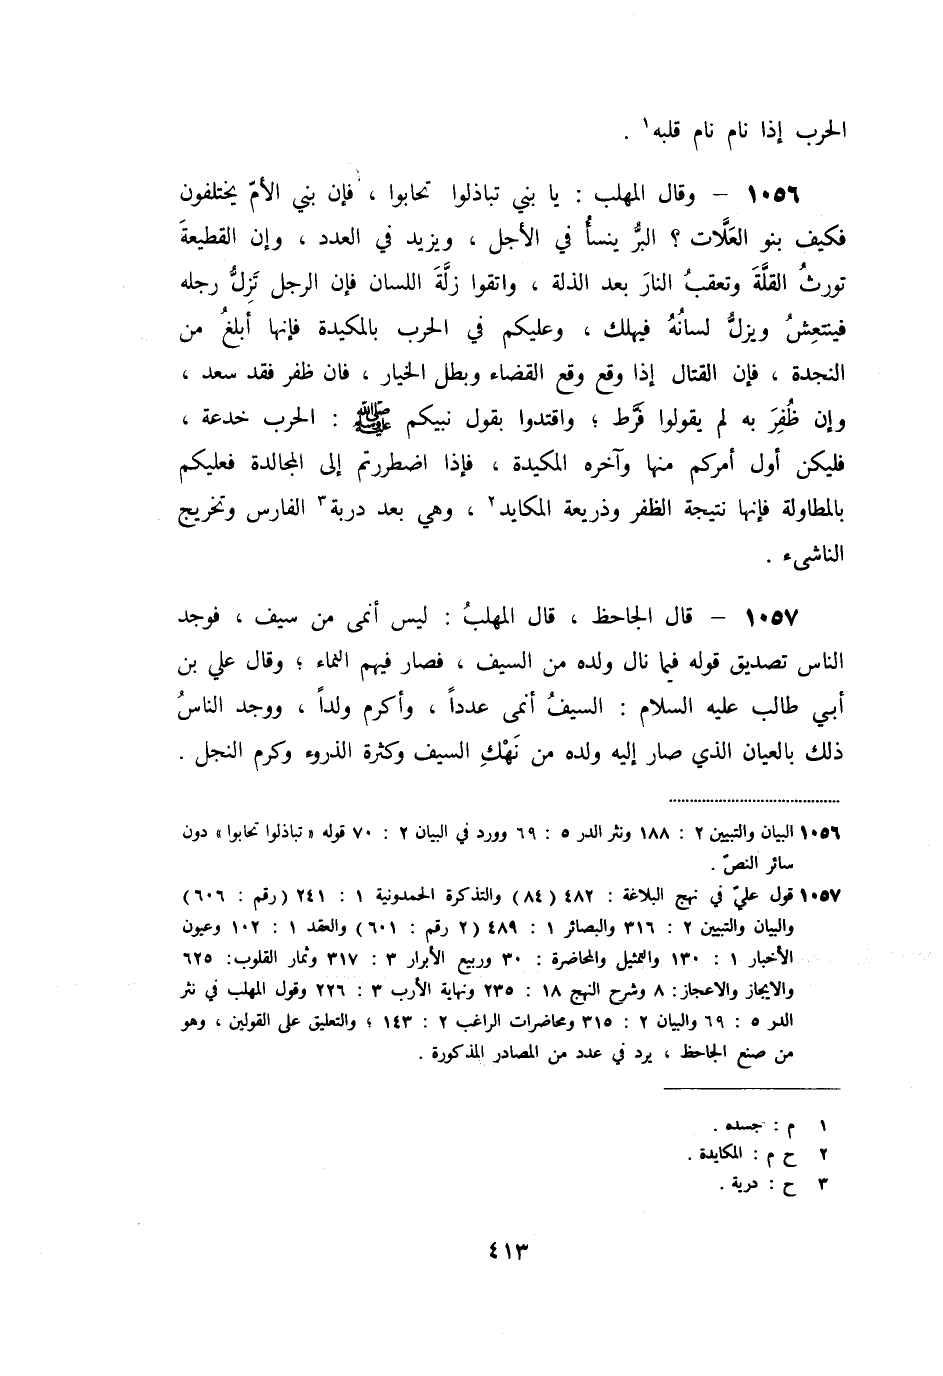 الحرب إذا نام نام قلبه١ .
١٠٥٦ – وقال المهلب : يا بني تباذلوا تحابوا ، فإن بني الأمّ يختلفون
فكيف بنو العَلَّات ؟ البرُّ ينسأُ في الأجل ، ويزيد في العدد ، وإن القطيعةَ
تورثُ القلَّةَ وتعقبُ النارَ بعد الذلة ، واتقوا زلَّةَ اللسان فإن الرجل تَزِلُّ رجله
فينتعِشُ ويزلُّ لسانُهُ فيهلك ، وعليكم في الحرب بالمكيدة فإنها أبلغُ من
النجدة ، فإن القتال إذا وقع وقع القضاء وبطل الخيار ، فان ظفر فقد سعد ،
وإن ظُفِرَ به لم يقولوا فَرَّط ؛ واقتدوا بقول نبيكم ﷺ : الحرب خدعة ،
فليكن أول أمركم منها وآخره المكيدة ، فإذا اضطررتم إلى المجالدة فعليكم
بالمطاولة فإنها نتيجة الظفر وذريعة المكايد٢ ، وهي بعد دربة٣ الفارس وتخريج
الناشىء .
١٠٥٧ – قال الجاحظ ، قال المهلبُ : ليس أنمى من سيف ، فوجد
الناس تصديق قوله فيما نال ولده من السيف ، فصار فيهم النماء ؛ وقال علي بن
أبي طالب عليه السلام : السيفُ أنمى عدداً ، وأكرم ولداً ، ووجد الناسُ
ذلك بالعيان الذي صار إليه ولده من نَهْكِ السيف وكثرة الذروء وكرم النجل .
١٠٥٦ البيان والتبيين ٢ : ١٨٨ ونثر الدر ٥ : ٦٩ وورد في البيان ٢ : ٧٠ قوله « تباذلوا تحابوا » دون
سائر النصّ .
١٠٥٧ قول عليّ في نهج البلاغة : ٤٨٢ ( ٨٤ ) والتذكرة الحمدونية ١ : ٢٤١ ( رقم : ٦٠٦ )
والبيان والتبيين ٢ : ٣١٦ والبصائر ١ : ٤٨٩ ( ٢ رقم : ٦٠١ ) والعقد ١ : ١٠٢ وعيون
الأخبار ١ : ١٣٠ والتمثيل والمحاضرة : ٣٠ وربيع الأبرار ٣ : ٣١٧ وثمار القلوب : ٦٢٥
والايجاز والاعجاز : ٨ وشرح النهج ١٨ : ٢٣٥ ونهاية الأرب ٣ : ٢٢٦ وقول المهلب في نثر
الدر ٥ : ٦٩ والبيان ٢ : ٣١٥ ومحاضرات الراغب ٢ : ١٤٣ ؛ والتعليق على القولين ، وهو
من صنع الجاحظ ، يرد في عدد من المصادر المذكورة .
١ م : جسده .
٢ ح م : المكايدة .
٣ ح : درية .
٤١٣